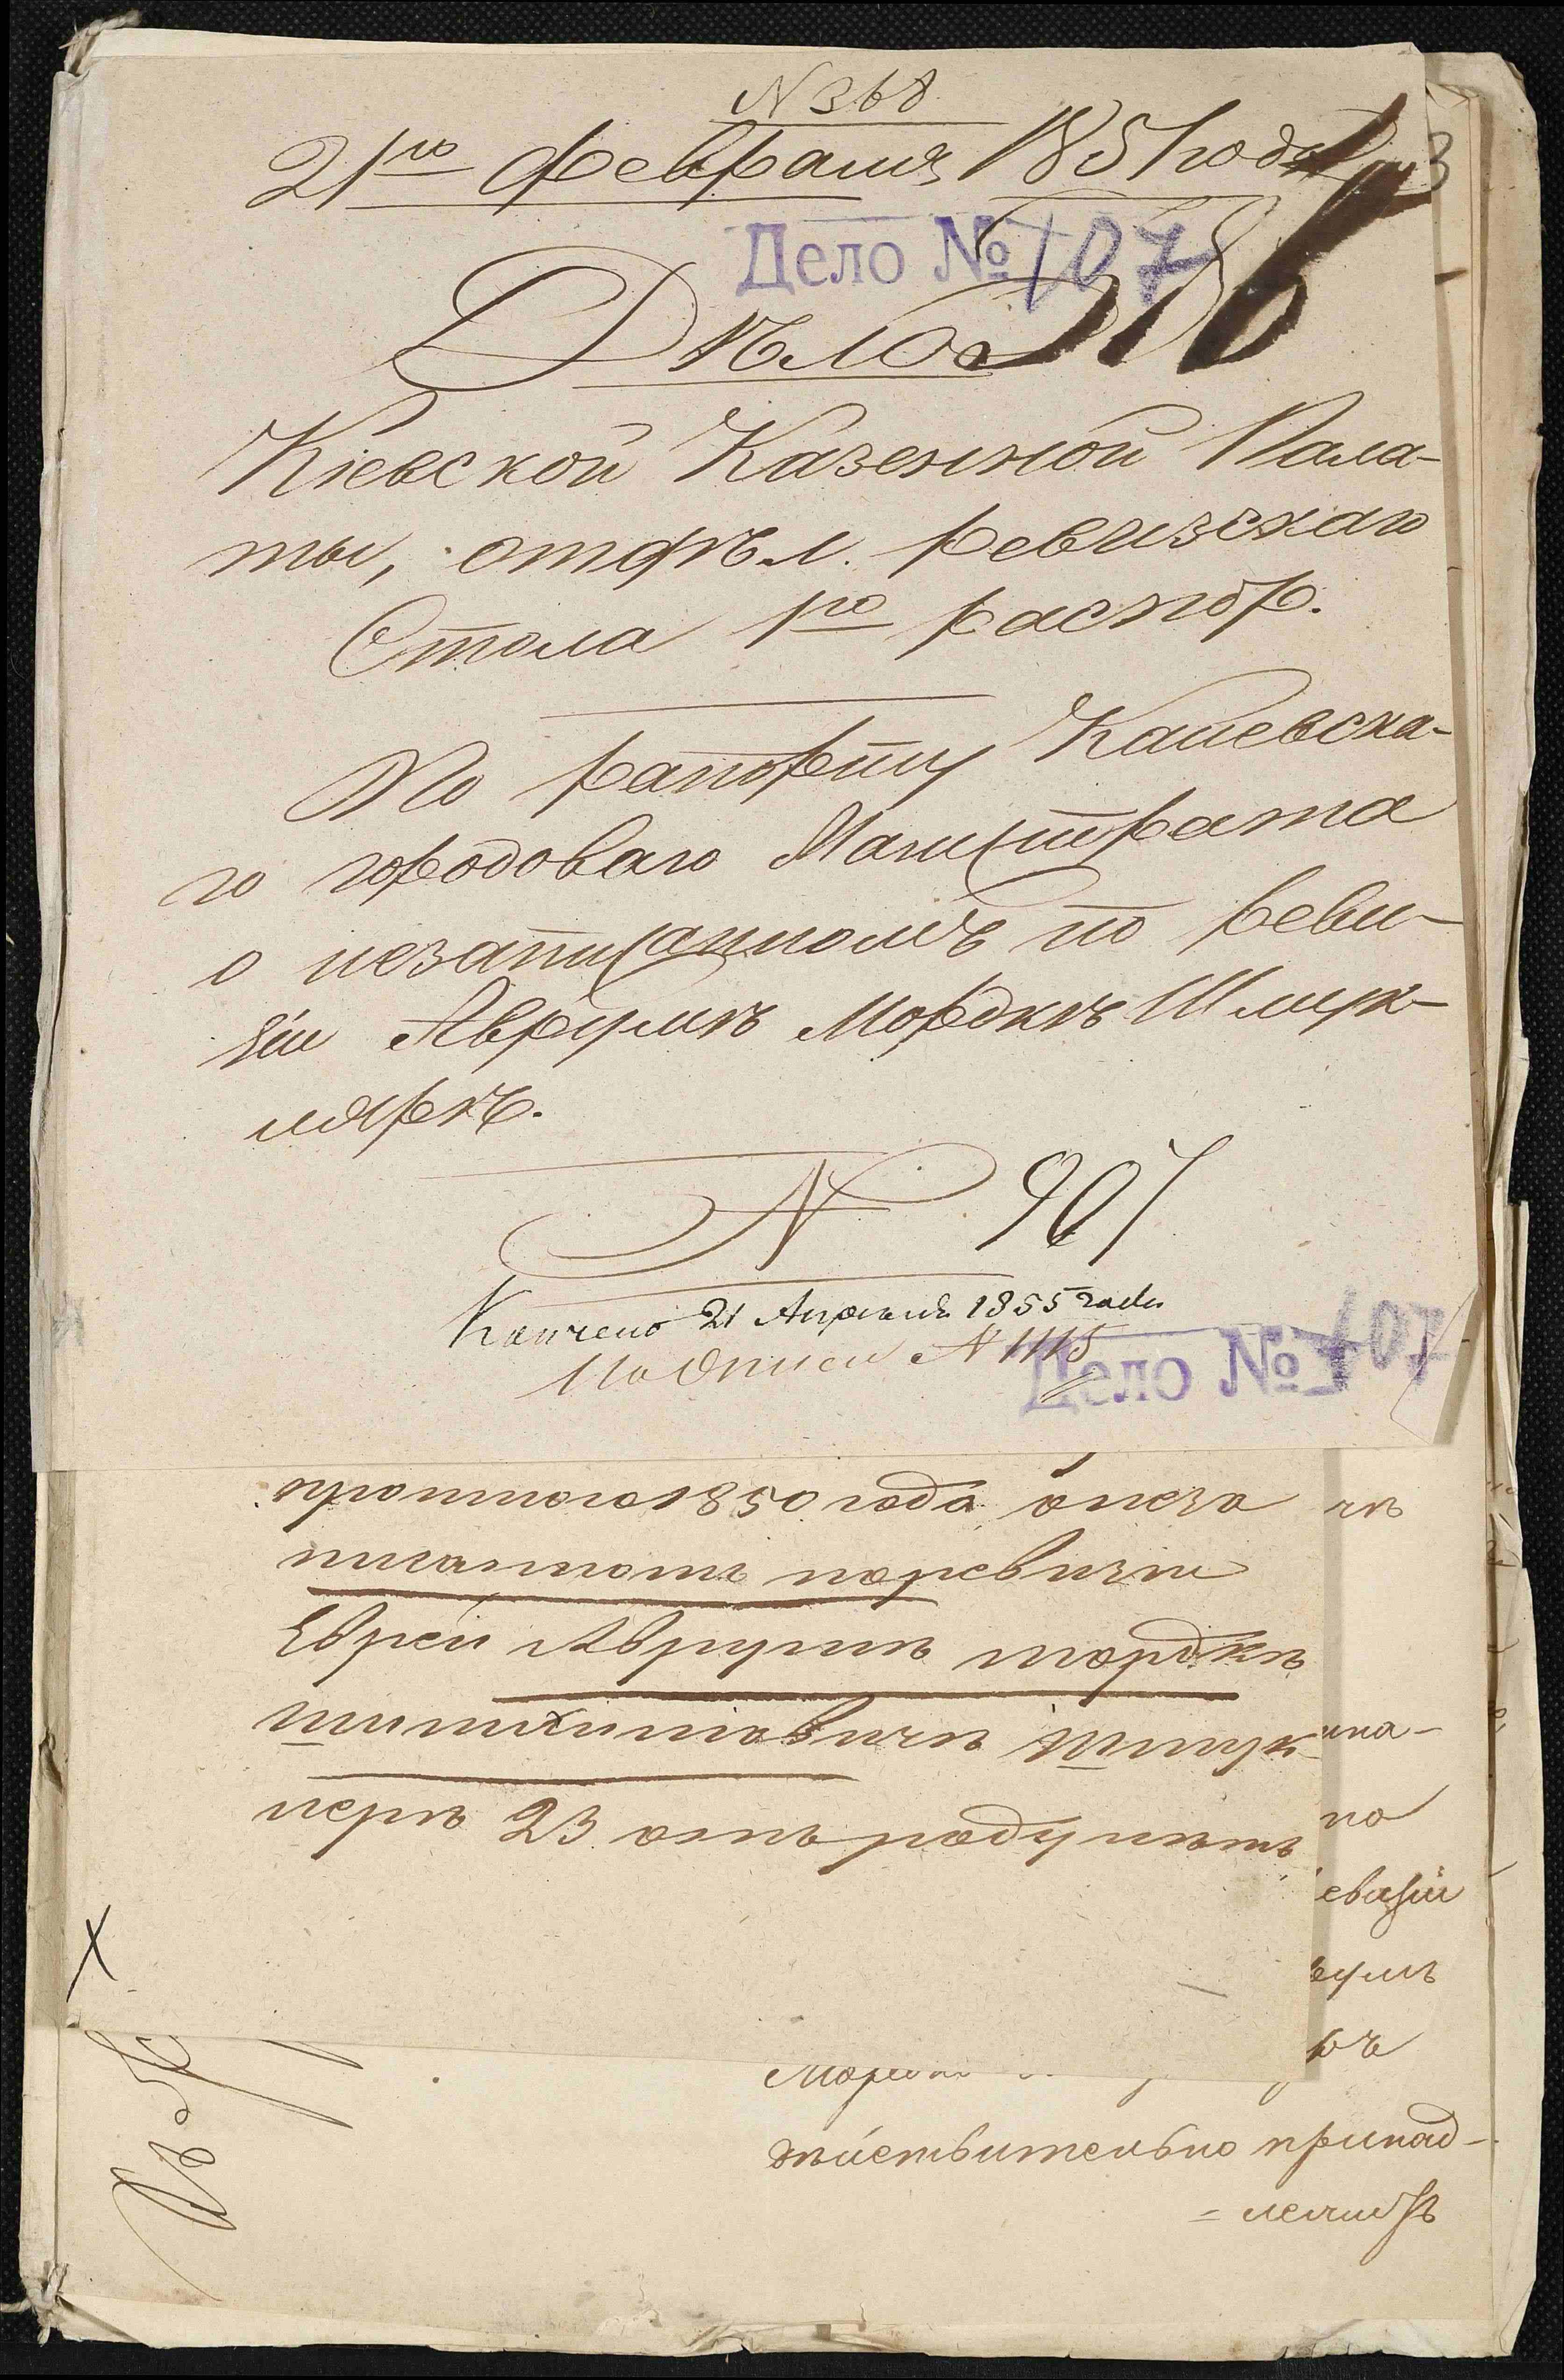 N 368
21го Февраля 1851 года
Дело № 107
316
Дѣло
Кіевской Казенной Пала-
ты, отдѣл. Ревизскаго
Стола 1го распор.
По рапорту Каневска-
го городоваго Магистрата
о незаписанномъ по реви-
зіи Аврумѣ Мордкѣ Шмук-
лярѣ.
N 907
Кончено 21 Апреля 1855 года
По описи N 1115
Дело № 107
прошлого 1850 года о неза
писанномъ поревизіи
Евреи Аврумѣ мордкѣ
шмук-
лерѣ 23 отъ роду лѣтъ
на-
по
евизіи
румъ
ръ
дѣйствительно принад-
= лежитъ